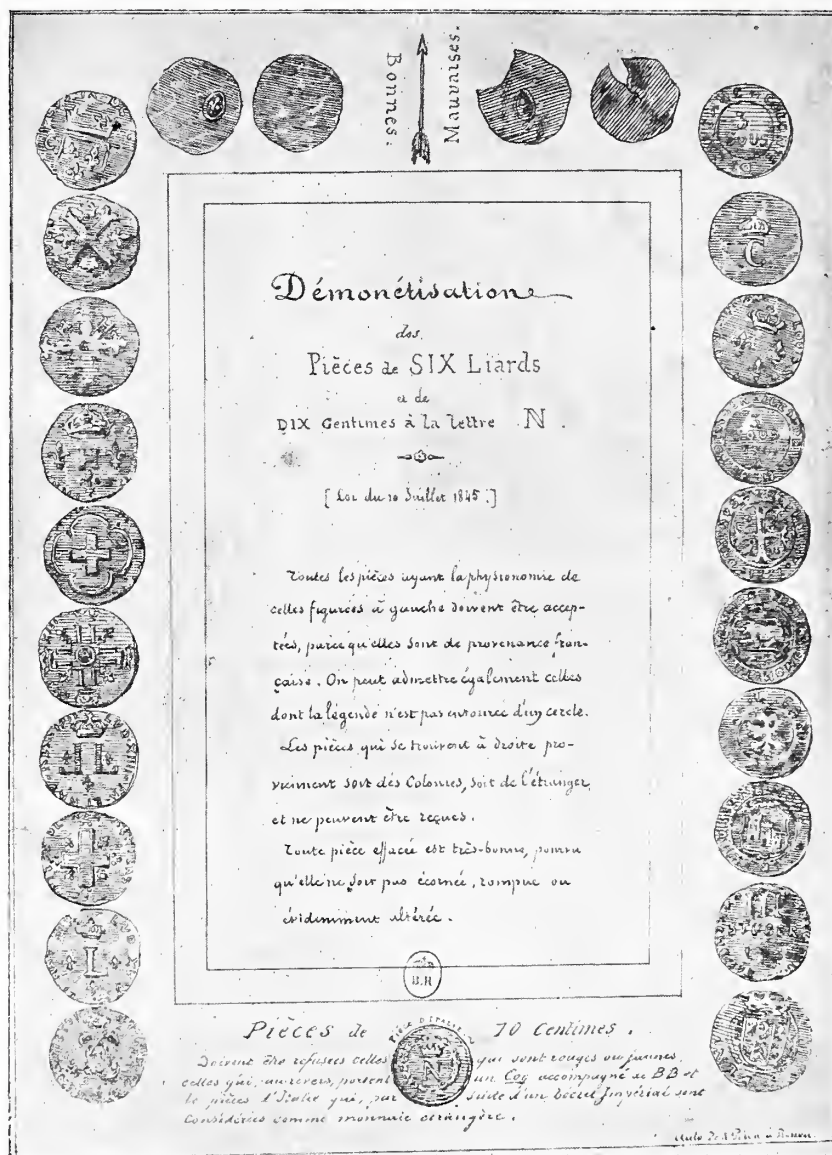 Bonnes.
Mauvaises.
Démonétisation
des
Pièces de SIX Liards
et de
DIX Centimes à la lettre N.
[Loi du 10 Juillet 1845.]
Toutes les pièces ayant la physionomie de
celles figurées à gauche doivent être accep-
tées, parce qu'elles sont de provenance fran-
çaise. On peut admettre également celles
dont la légende n'est pas entourée d'un cercle.
Les pièces qui se trouvent à droite pro-
viennent soit des Colonies, soit de l'étranger,
et ne peuvent être reçues.
Toute pièce effacée est très-bonne, pourvu
qu'elle ne soit pas écornée, rompue ou
évidemment altérée.
B.R
Pièces de 10 Centimes.
Doivent être refusées celles qui sont rouges ou jaunes,
celles qui, au revers, portent un Coq accompagné de BB et
les pièces d'Italie qui, par suite d'un Décret Impérial sont
considérées comme monnaie étrangère.
PIÈCE D'ITALIE
N
3
SOUS
C
L